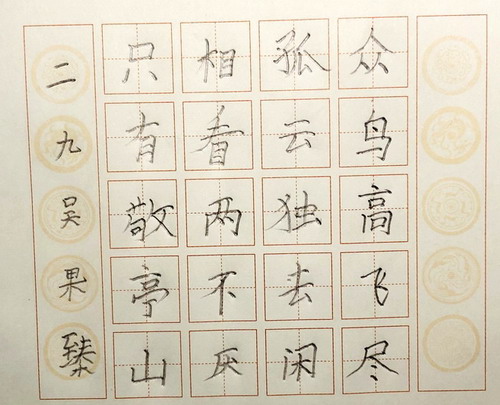 众鸟高飞尽
孤云独去闲
相看两不厌
只有敬亭山
二九吴果臻